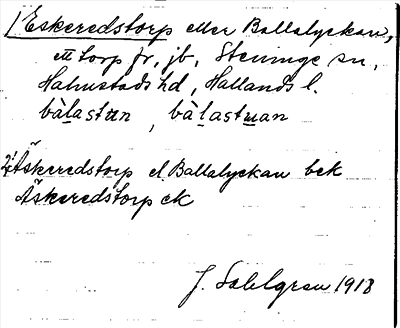 1/ Eskeredstorp eller Ballalyckan,
ett torp fr, jb, Steninge sn,
Halmstads hd, Hallands l.
bàlastæn, bàlastuan
2/ Äskeredstorp el. Ballalyckan bek
Äskeredstorp ek
J. Sahlgren 1918